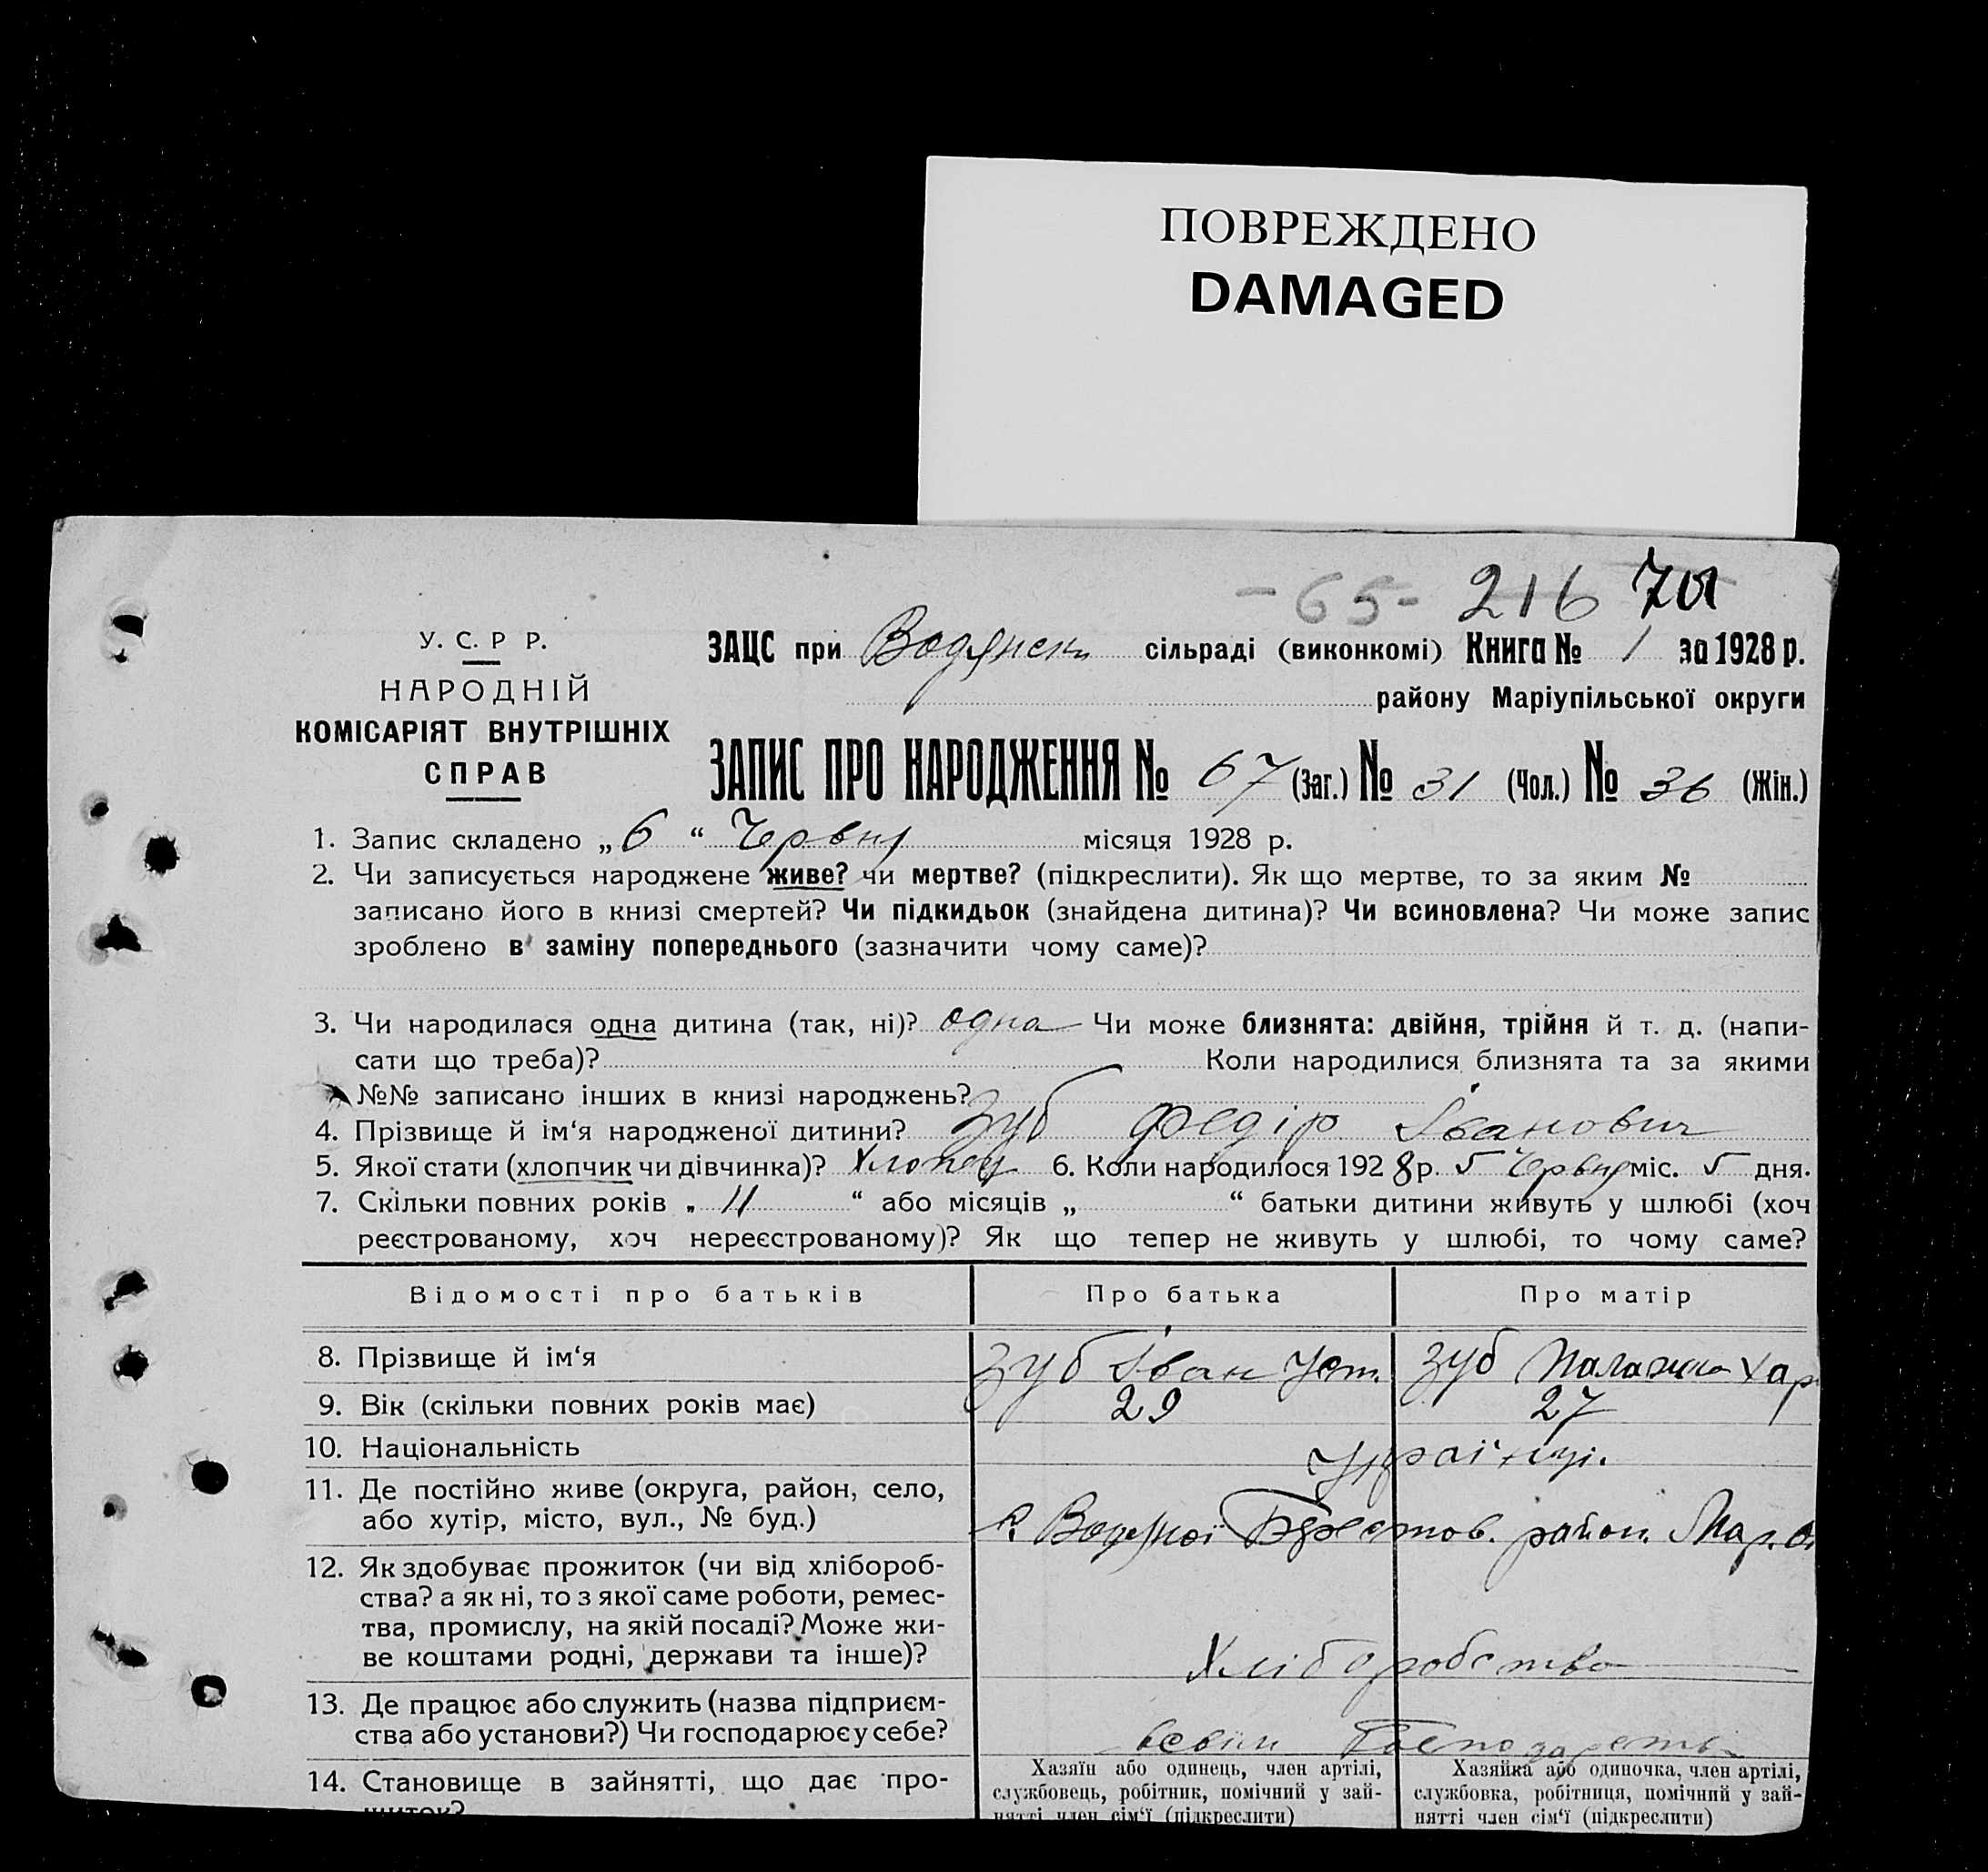 ПОВРЕЖДЕНО
DAMAGED
-65- 216 70
У. С. Р Р.
НАРОДНІЙ
КОМІСАРІЯТ ВНУТРІШНІХ
СПРАВ
ЗАЦС при Водянськ сільраді (виконкомі) Книга № 1 за 1928 р.
району Маріупільської округи
ЗАПИС ПРО НАРОДЖЕННЯ № 67 (Заг.) № 31 (Чол.) № 36 (Жін.)
1. Запис складено „6“ Червня місяця 1928 р.
2. Чи записується народжене живе? чи мертве? (підкреслити). Як що мертве, то за яким №
записано його в книзі смертей? Чи підкидьок (знайдена дитина)? Чи всиновлена? Чи може запис
зроблено в заміну попереднього (зазначити чому саме)?
3. Чи народилася одна дитина (так, ні)? одна Чи може близнята: двійня, трійня й т. д. (напи-
сати що треба)? Коли народилися близнята та за якими
№№ записано інших в книзі народжень?
4. Прізвище й ім‘я народженої дитини? Зуб Федір Іванович
5. Якої стати (хлопчик чи дівчинка)? Хлопец 6. Коли народилося 1928 р. 5 Червня міс. 5 дня.
7. Скільки повних років „ 11 “ або місяців „ “ батьки дитини живуть у шлюбі (хоч
реєстрованому, хоч нереєстрованому)? Як що тепер не живуть у шлюбі, то чому саме?
Відомості про батьків Про батька Про матір
8. Прізвище й ім‘я Зуб Іван Уст. Зуб Палажка Хар
9. Вік (скільки повних років має) 29 27
10. Національність Українці.
11. Де постійно живе (округа, район, село,
або хутір, місто, вул., № буд.) с. Водяної район. Мар. О.
12. Як здобуває прожиток (чи від хлібороб-
ства? а як ні, то з якої саме роботи, ремес-
тва, промислу, на якій посаді? Може жи-
ве коштами родні, держави та інше)? Хліборобство
13. Де працює або служить (назва підприєм-
ства або установи?) Чи господарює у себе?
14. Становище в зайнятті, що дає про-
житок?
Хазяїн або одинець, член артілі,
службовець, робітник, помічний у зай-
нятті член сім‘ї (підкреслити)
Хазяйка або одиночка, член артілі,
службовка, робітниця, помічний у зай-
нятті член сім‘ї (підкреслити)